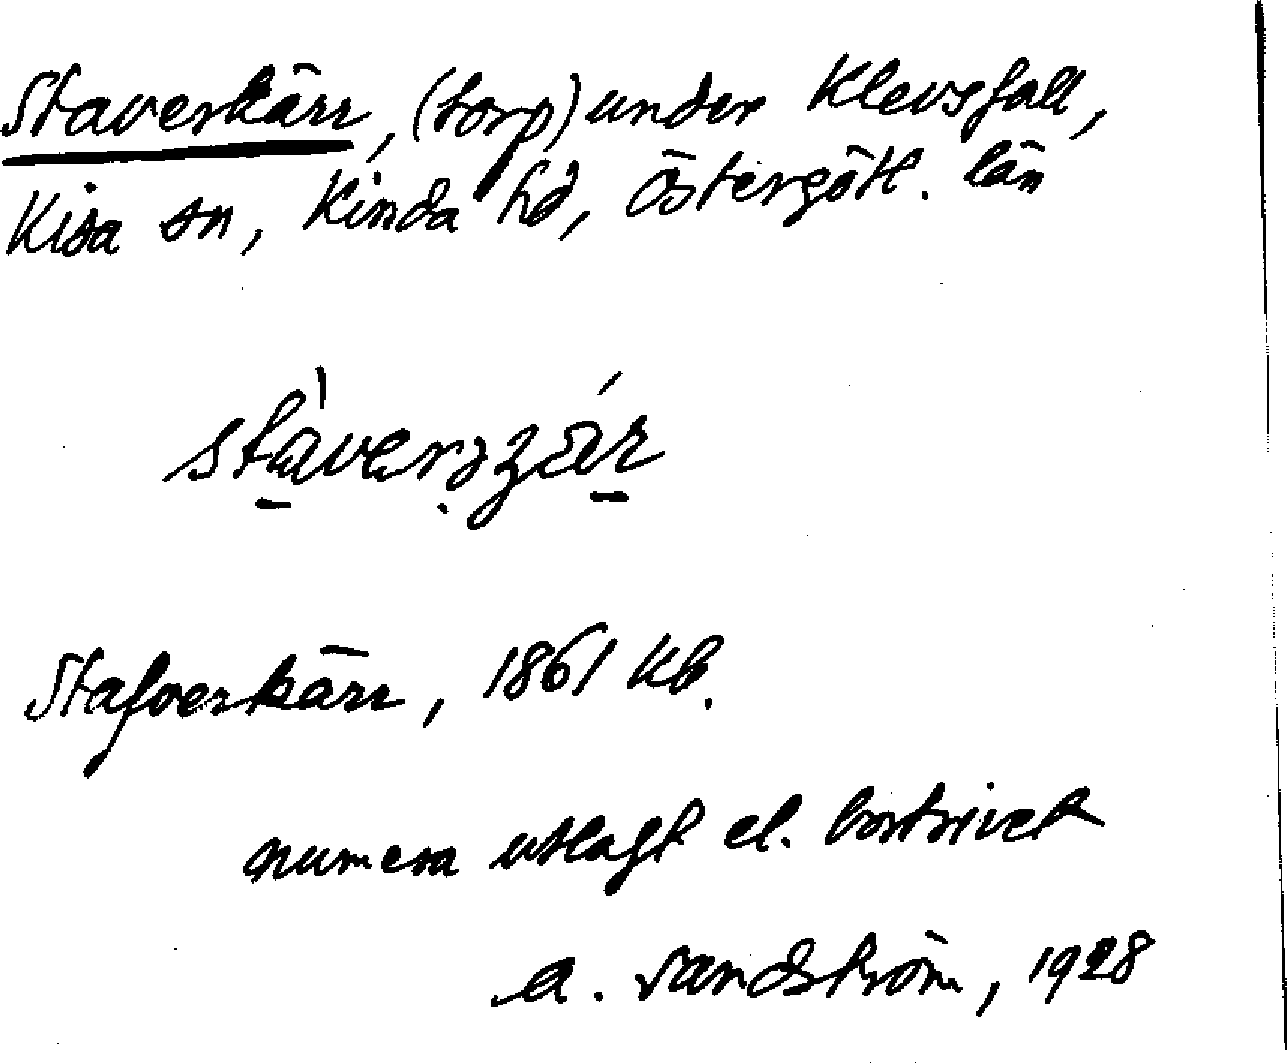 Staverkärr, (torp) under Klevsfall,
Kisa sn, Kinda hd, Östergötl. län
Stafverkärr, 1861 Kb.
numera utlagt el. bortrivet
A. Sandström, 1928